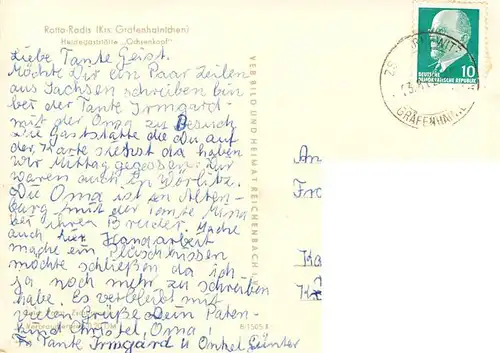 Rotta-Radis (Krs. Gräfenhainichen)
Heuregaststätte „Ochsenkopf"
Liebe Tante Geist.
Möchte Dir ein Paar Zeilen
aus Sachsen schreiben bin
bei der Tante Irmgard
mit der Oma zu Besuch
Die Gaststätte die Du auf
der Karte siehst da haben
wir Mittag gegessen. Wir
waren auch in Wörlitz.
Die Oma ist in Alten-
burg mit der Tante
bei ihren Bruder. Mache
auch hier Handarbeit
mache ein Plüschkissen
möchte schließen da ich
ja noch mehr zu schreiben
habe. Es verbleibt mit
vielen Grüße Dein Paten-
kind Christel, Oma!
Tante Irmgard u Onkel Günter
VEB BILD UND HEIMAT REICHENBACH I. V.
6/1505
DEUTSCHE
DEMOKRATISCHE REPUBLIK
10
GRÄFENHAINI
An
Fr